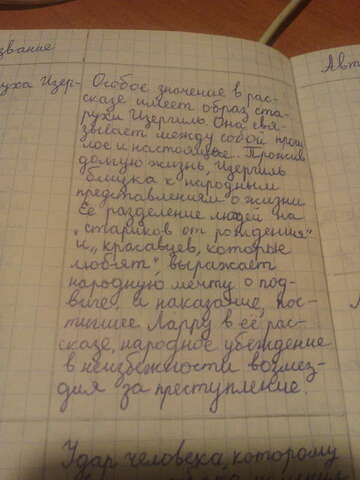 звание
Авт
уха Изер-
Особое значение в рас-
сказе имеет образ ста-
рухи Изергиль. Она свя-
зывает между собой прош
лое и настоящее. Прожив
долгую жизнь, Изергиль
близка к народным
представлениям о жизни.
Её разделение людей на
„стариков от рождения"
и „красавцев, которые
любят", выражает
народную мечту о под-
виге, а наказание, пос-
тигшее Ларру в её рас-
сказе, народное убеждение
в неизбежности возмез-
дия за преступление.
Удар человека, которому